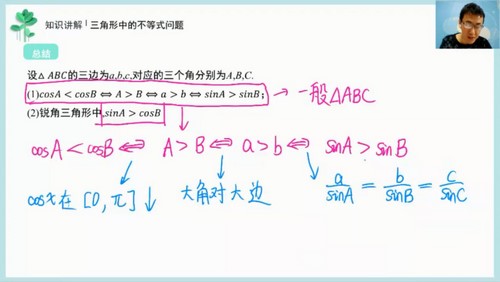 知识讲解 | 三角形中的不等式问题
总结
设△ ABC的三边为a,b,c,对应的三个角分别为A,B,C.
(1)cosA < cosB ⇔ A > B ⇔ a > b ⇔ sinA > sinB；→ 一般△ABC
(2)锐角三角形中,sinA > cosB
cosA < cosB ⇔ A > B ⇔ a > b ⇔ sinA > sinB
cosx在 [0, π] ↓ 大角对大边 a/sinA = b/sinB = c/sinC